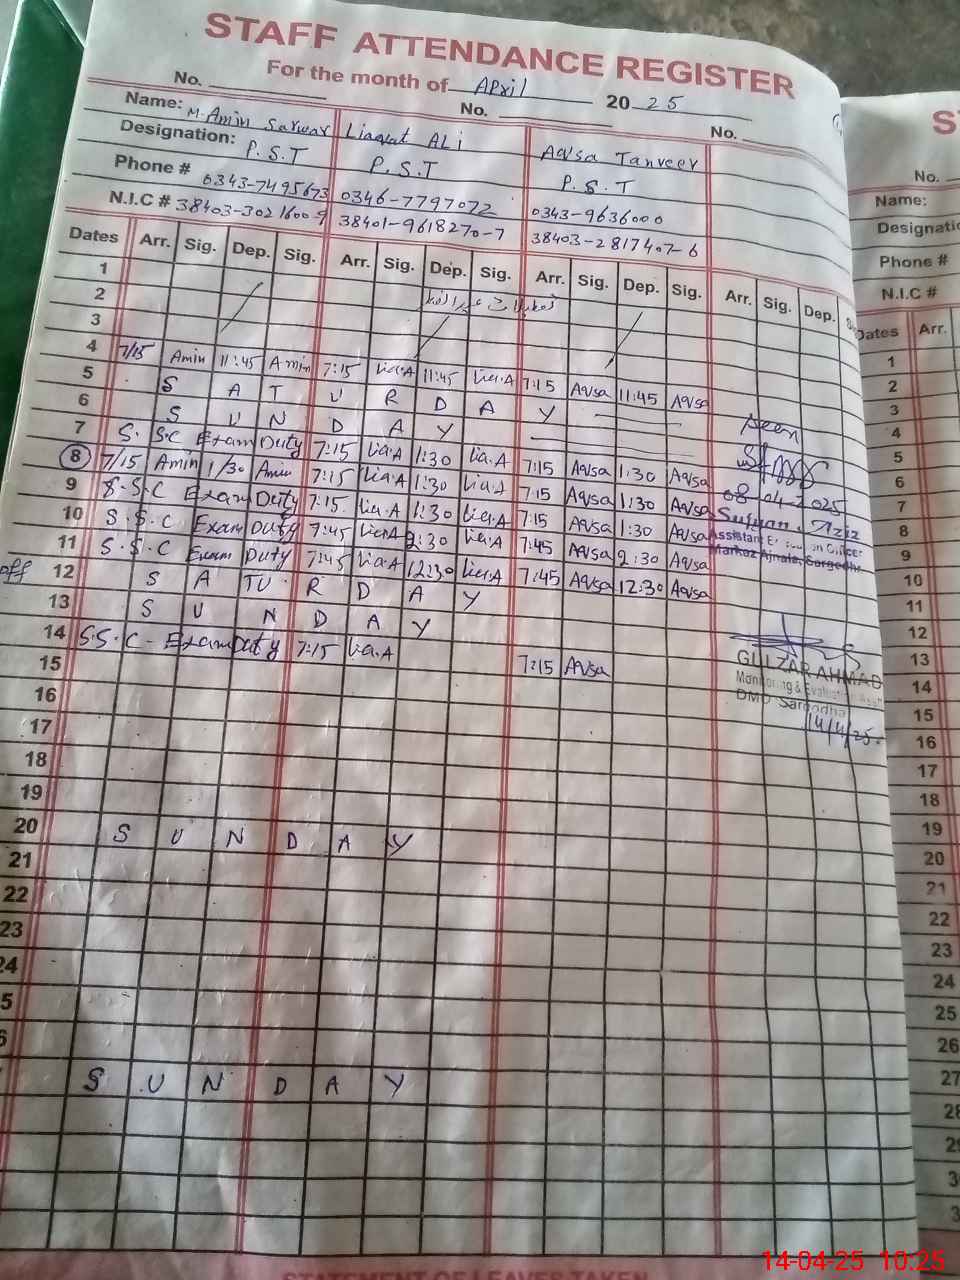 STAFF ATTENDANCE REGISTER
For the month of April 2025
No. No. No.
Name: M. Amin Sarwar Liaquat ALi Aqsa Tanveer
Designation: P.S.T P.S.T P.S.T
Phone # 0343-7495673 0346-7797072 0343-9636000
N.I.C # 38403-3021600-9 38401-9618270-7 38403-2817407-6
Dates Arr. Sig. Dep. Sig. Arr. Sig. Dep. Sig. Arr. Sig. Dep. Sig. Arr. Sig. Dep.
1
2
3
4 7/15 Amin 11:45 Amin 7:15 Lia.A 11:45 Lia.A 7:15 Aqsa 11:45 Aqsa
5 S A T U R D A Y
6 S U N D A Y
7 S.S.C Exam Duty 7:15 Lia.A 1:30 Lia.A 7:15 Aqsa 1:30 Aqsa
8 7/15 Amin 1/30 Amin 7:15 Lia.A 1:30 Lia.A 7:15 Aqsa 1:30 Aqsa
9 S.S.C Exam Duty 7:15 Lia.A 1:30 Lia.A 7:15 Aqsa 1:30 Aqsa
10 S.S.C Exam Duty 7:45 Lia.A 2:30 Lia.A 7:45 Aqsa 2:30 Aqsa
11 S.S.C Exam Duty 7:45 Lia.A 12:30 Lia.A 7:45 Aqsa 12:30 Aqsa
off 12 S A TU R D A Y
13 S U N D A Y
14 S.S.C - Exam Duty 7:15 Lia.A 7:15 Aqsa
15
16
17
18
19
20 S U N D A Y
21
22
23
24
5
6
S U N D A Y
Seen
08-04-2025
Sufyan Aziz
Assistant Education Officer
Markaz Ajnala, Sargodha
GULZAR AHMAD
Monitoring & Evaluation
DMO Sargodha
14/4/25
S
No.
Name:
Designatio
Phone #
N.I.C #
Dates Arr.
1
2
3
4
5
6
7
8
9
10
11
12
13
14
15
16
17
18
19
20
21
22
23
24
25
26
27
28
29
3
3
STATEMENT OF LEAVE TAKEN
14-04-25 10:25